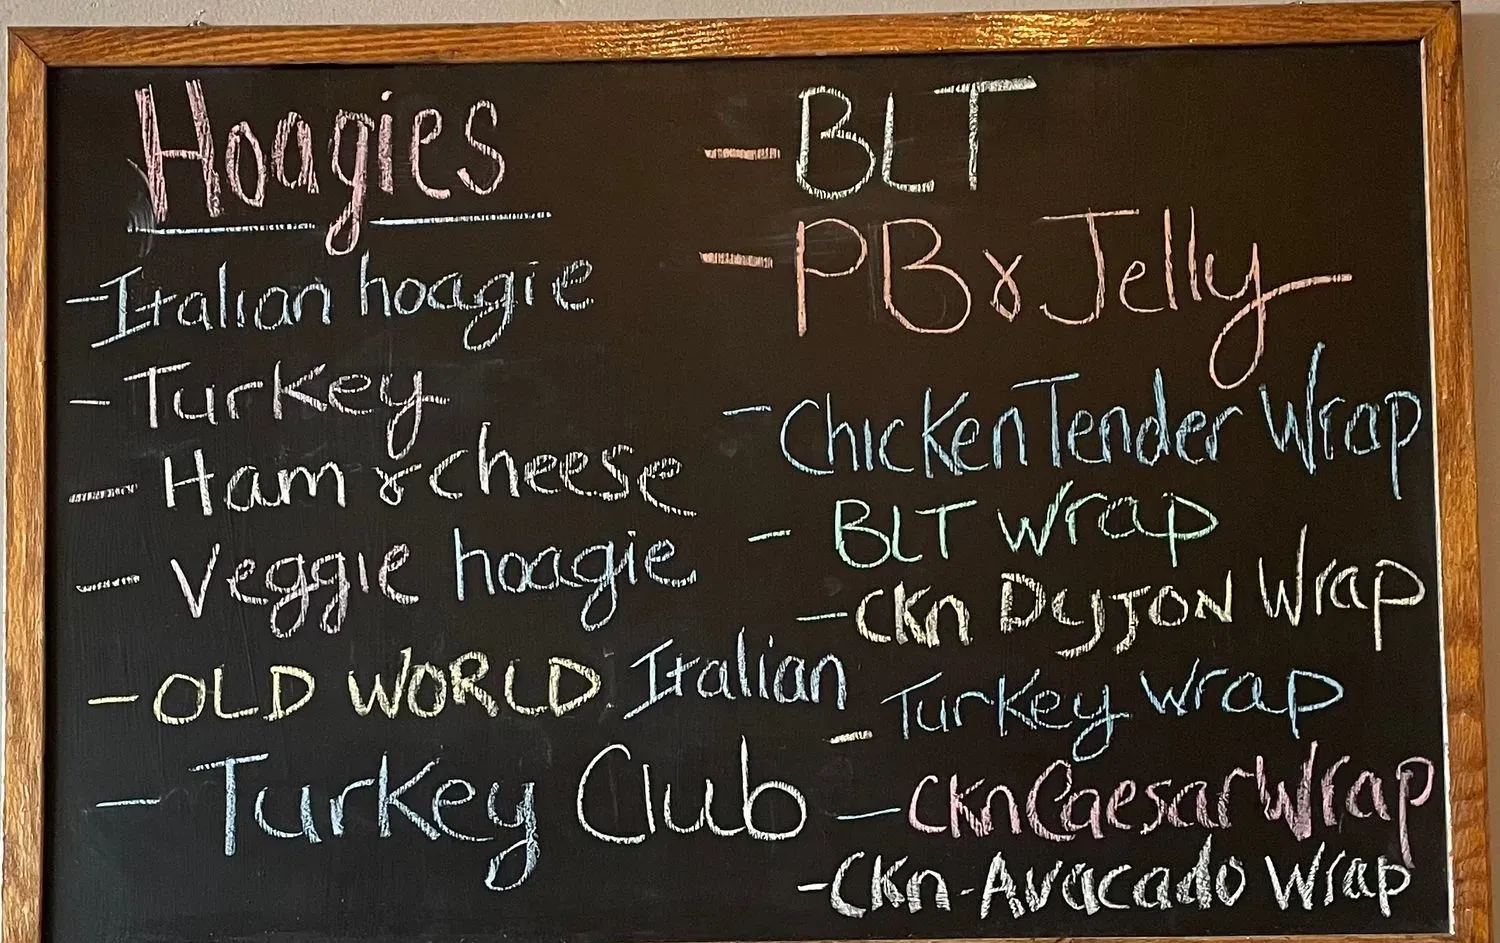 Hoagies
- Italian hoagie
- Turkey
- Ham & cheese
- Veggie hoagie
- OLD WORLD Italian
- Turkey Club
- BLT
- PB & Jelly
- Chicken Tender Wrap
- BLT wrap
- CKn DyJON Wrap
- Turkey wrap
- CKn Caesar Wrap
- CKn-Avacado Wrap